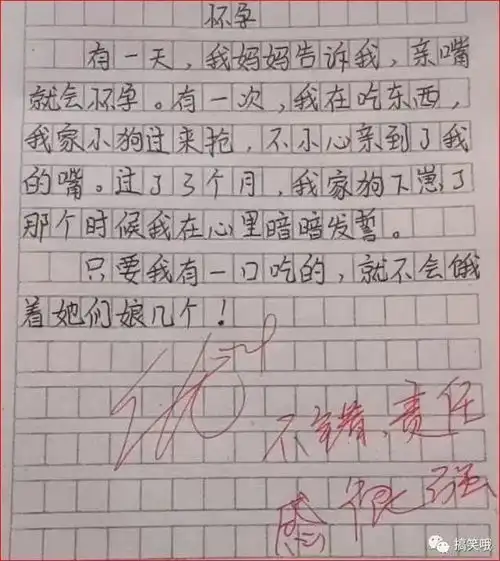 怀孕
有一天，我妈妈告诉我，亲嘴
就会怀孕。有一次，我在吃东西，
我家小狗过来抢，不小心亲到了我
的嘴。过了3个月，我家狗下崽了
那个时候我在心里暗暗发誓。
只要我有一口吃的，就不会饿
着她们娘几个！
优
不错，责任
感很强
搞笑哦